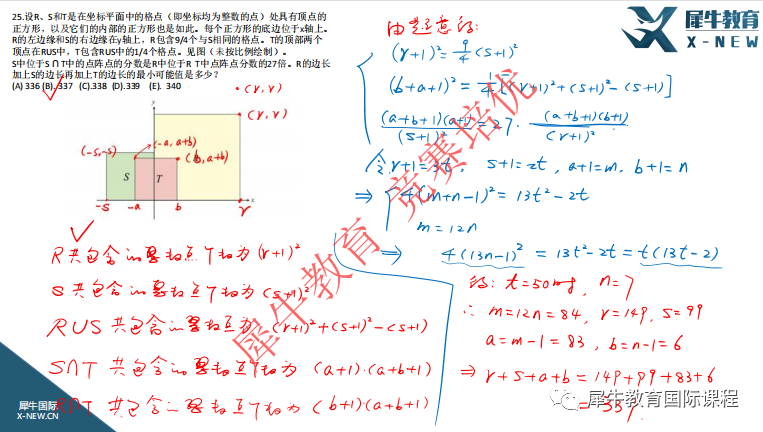 25.设R、S和T是在坐标平面中的格点（即坐标均为整数的点）处具有顶点的
正方形，以及它们的内部的正方形也是如此。每个正方形的底边位于x轴上。
R的左边缘和S的右边缘在y轴上，R包含9/4个与S相同的格点。T的顶部两个
顶点在RUS中，T包含RUS中的1/4个格点。见图（未按比例绘制）。
S中位于S ∩ T中的点阵点的分数是R中位于R T中点阵点分数的27倍。R的边长
加上S的边长再加上T的边长的最小可能值是多少？
(A) 336 (B). 337 (C).338 (D).339 (E). 340
犀牛教育
X-NEW
由题意得:
(r+1)² = 9/4 (s+1)²
(b+a+1)² = 1/4 [(r+1)² + (s+1)² - (s+1)]
(a+b+1)(a+1) / (s+1)² = 27 · (a+b+1)(b+1) / (r+1)²
设 r+1=3t, s+1=2t, a+1=m, b+1=n
⇒ 4(m+n-1)² = 13t² - 2t
m=12n
⇒ 4(13n-1)² = 13t²-2t = t(13t-2)
n=7
∴ m=12n=84, r=149, s=99
a=m-1=83, b=n-1=6
⇒ r+s+a+b = 149+99+83+6
= 337
(r,r)
(r,r)
(-s,s)
(-a,a+b)
(b,a+b)
S
T
y
x
-s
-a
b
r
R共包含的整数点个数为(r+1)²
S共包含的整数点个数为(s+1)²
RUS共包含的整数点为 (r+1)²+(s+1)²-(s+1)
S∩T共包含的整数点个数为 (a+1)·(a+b+1)
R∩T共包含的整数点个数为 (b+1)(a+b+1)
犀牛教育 竞赛培优
犀牛国际
X-NEW.CN
犀牛教育国际课程